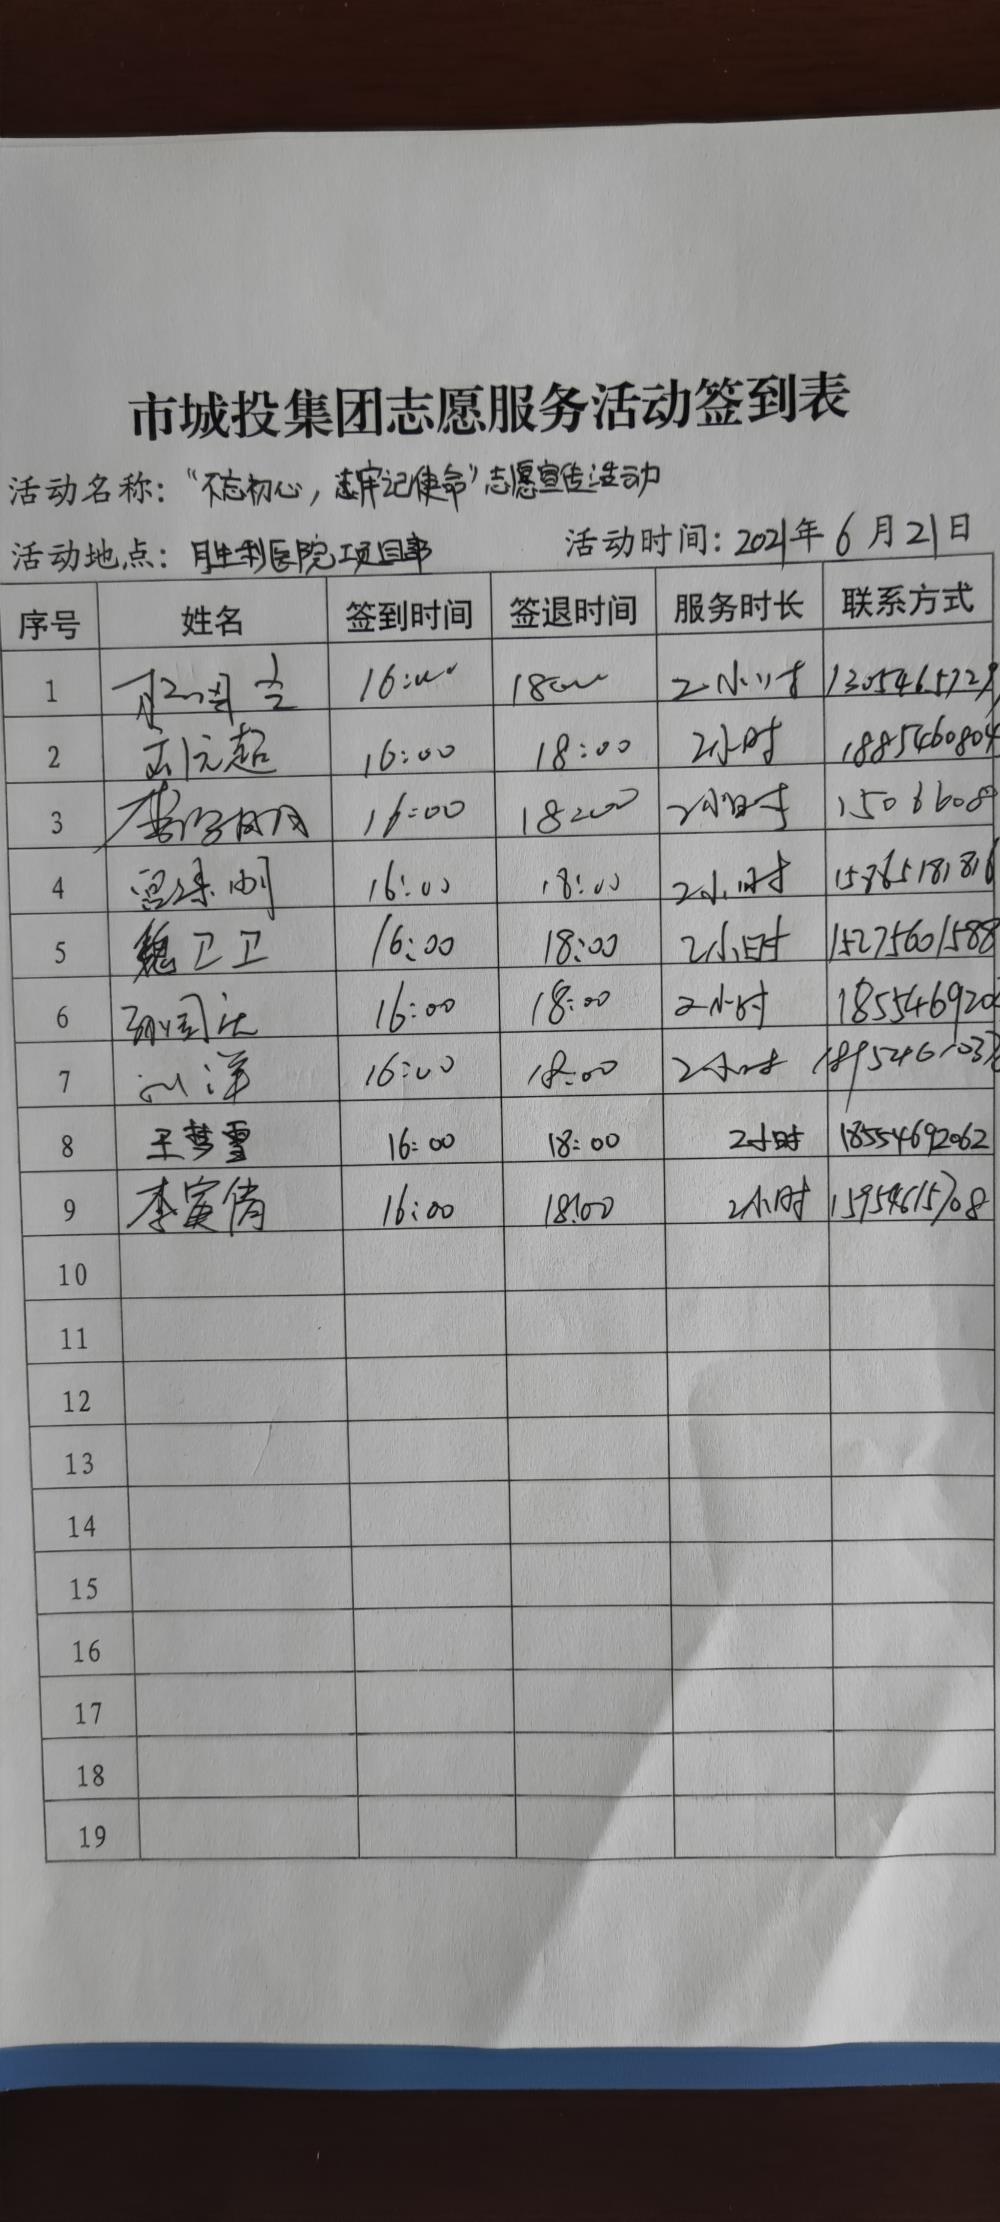 市城投集团志愿服务活动签到表
活动名称："不忘初心，牢记使命"志愿宣传活动
活动地点：胜利医院项目部 活动时间：2021年6月21日
序号 姓名 签到时间 签退时间 服务时长 联系方式
1 16:00 18:00 2小时
2 16:00 18:00 2小时 1885460804
3 16:00 18:00 2小时 1506608
4 16:00 18:00 2小时 15865181816
5 魏卫卫 16:00 18:00 2小时 15275601588
6 16:00 18:00 2小时 1855469206
7 刘洋 16:00 18:00 2小时
8 王梦雪 16:00 18:00 2小时 18554692062
9 李寅倩 16:00 18:00 2小时 15954615708
10
11
12
13
14
15
16
17
18
19